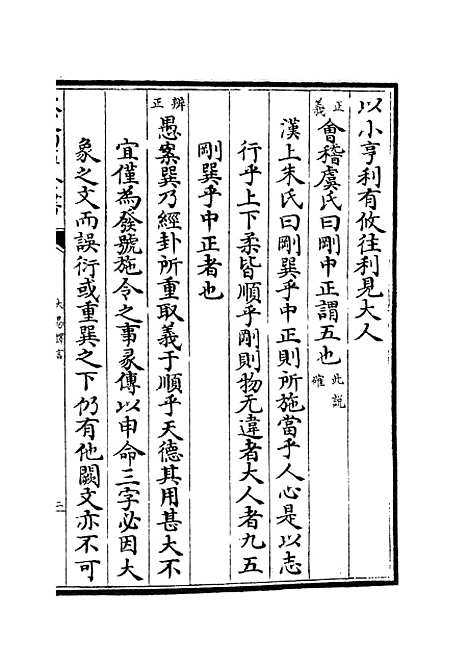 以小亨利有攸往利見大人
正義會稽虞氏曰剛中正謂五也此說確
漢上朱氏曰剛巽乎中正則所施當乎人心是以志
行乎上下柔皆順乎剛則物无違者大人者九五
剛巽乎中正者也
辨正愚案巽乃經卦所重取義于順乎天德其用甚大不
宜僅為發號施令之事彖傳以申命三字必因大
象之文而誤衍或重巽之下仍有他闕文亦不可
大易擇言
二